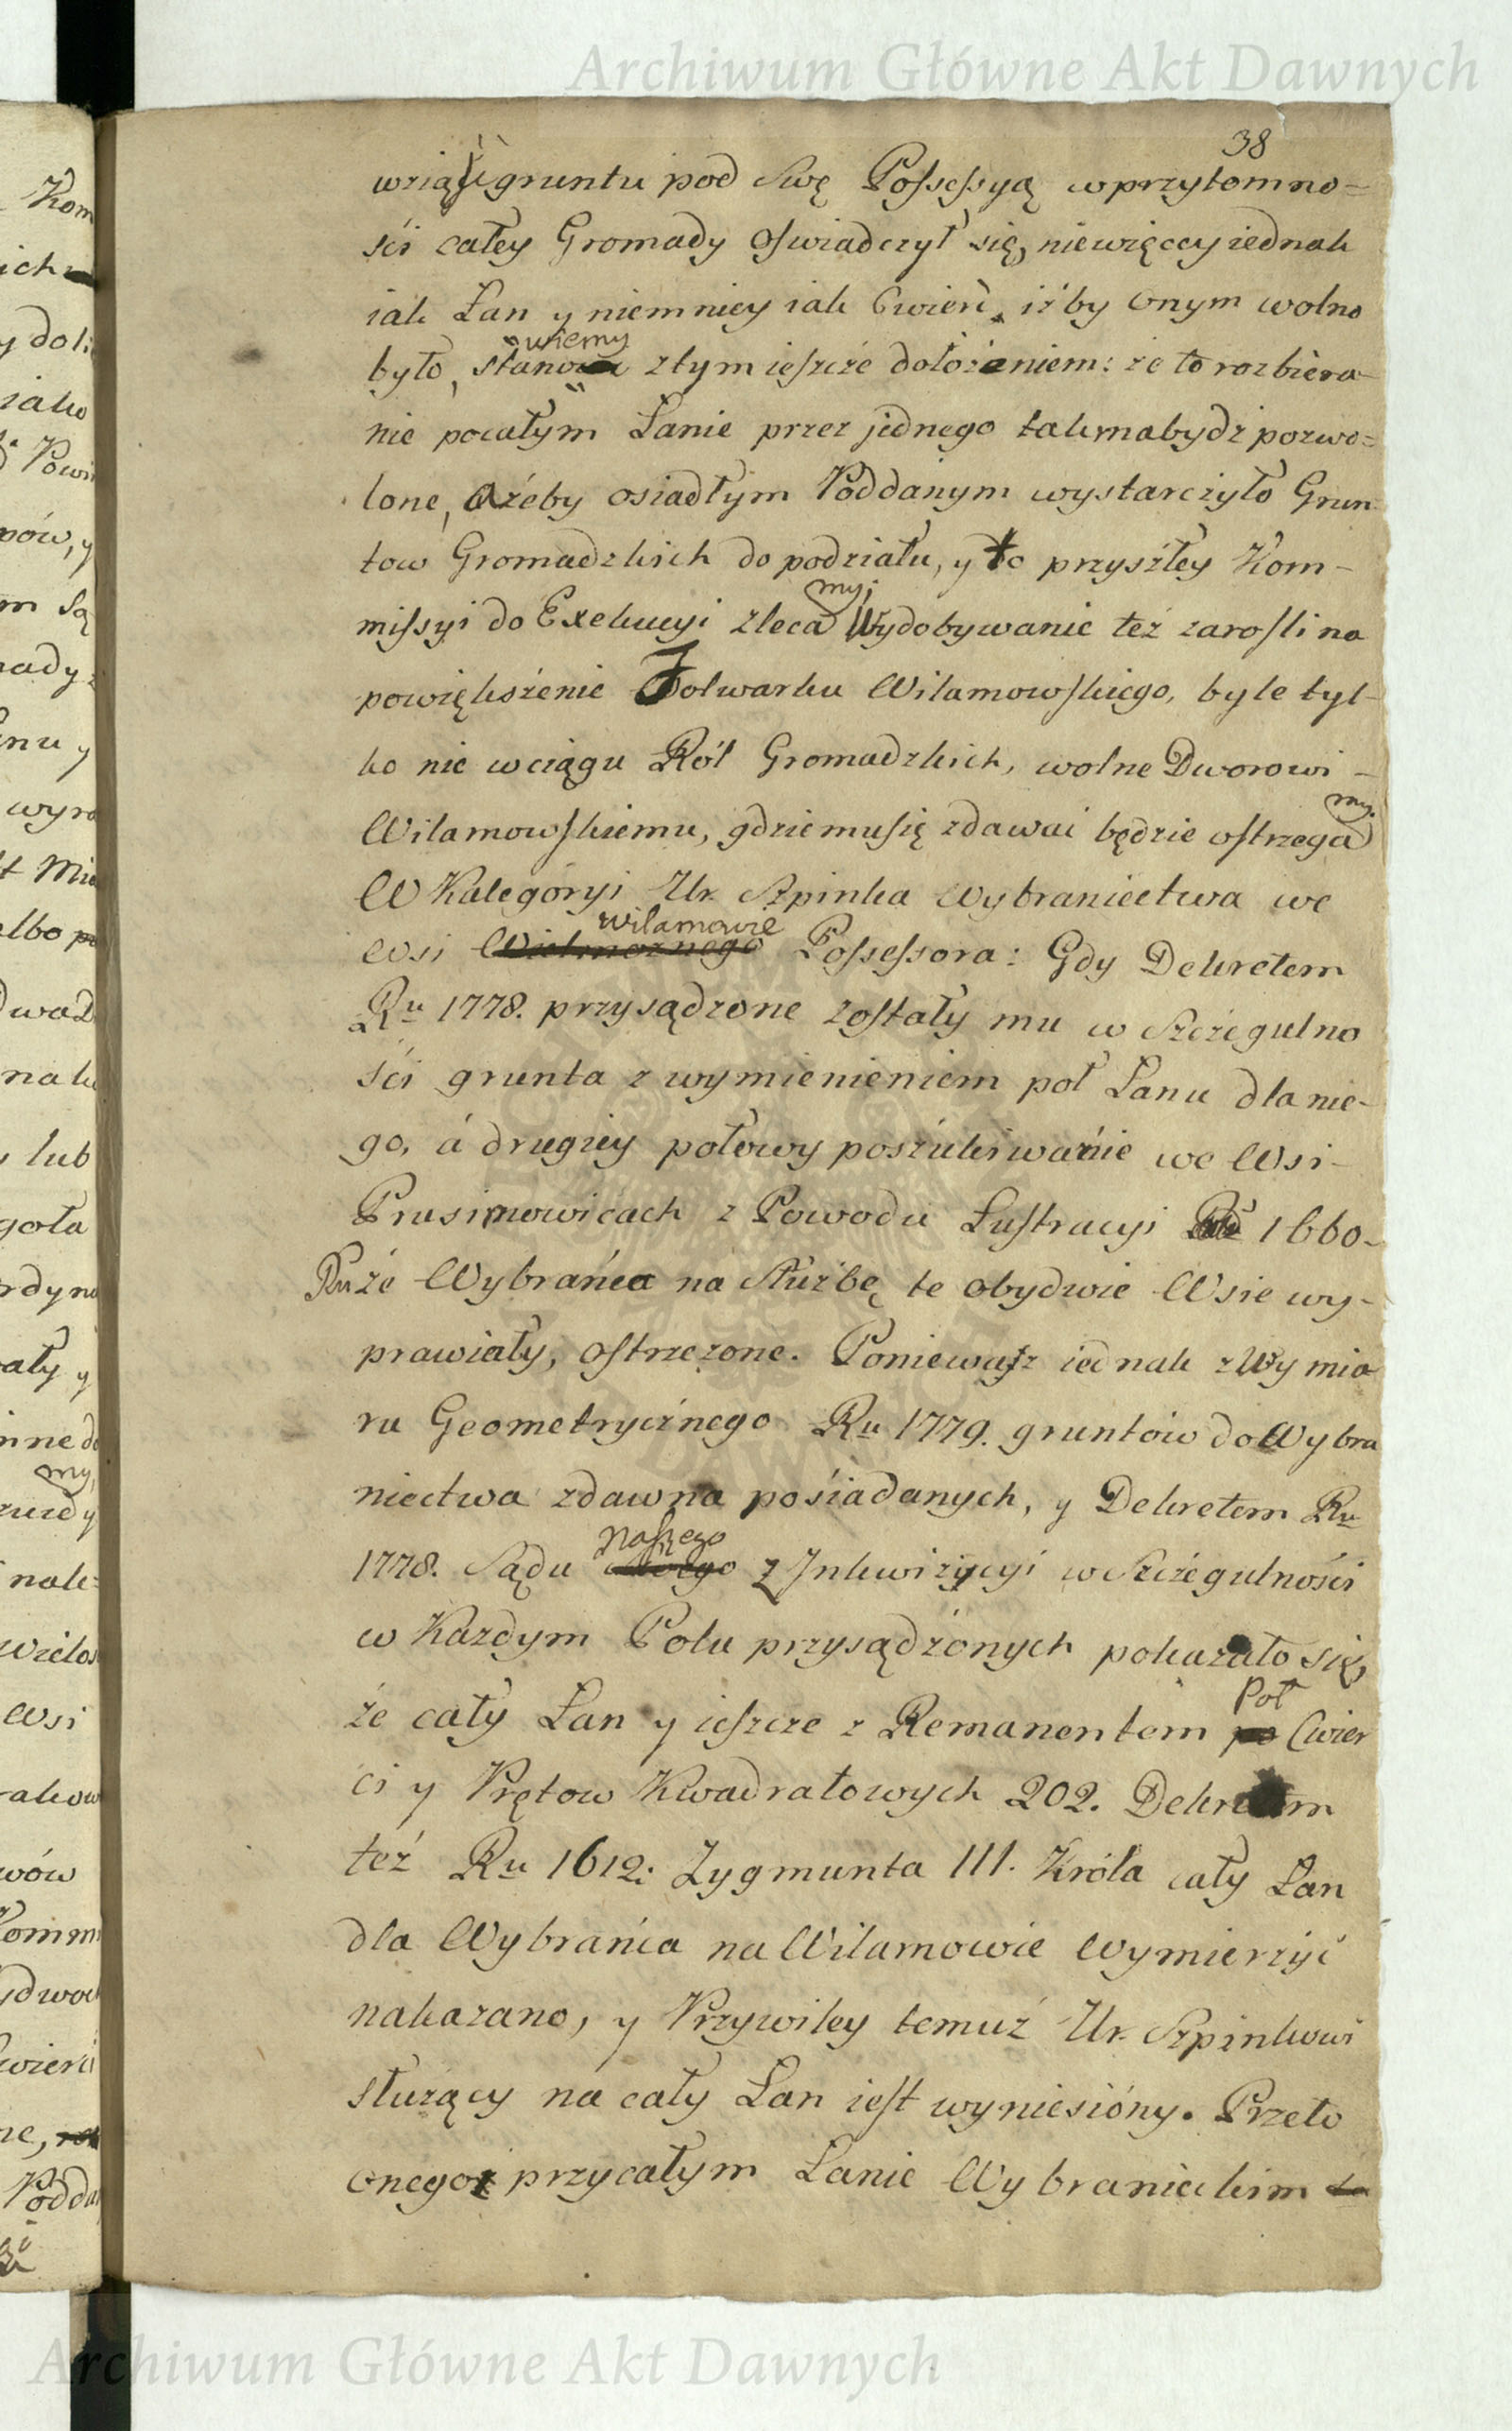 Archiwum Główne Akt Dawnych
38
wziąść gruntu pod Swę Possessyą wprzytomno=
ści całey Gromady oswiadczył się, niewięccy iednak
iak Łan y niemniey iak Cwierć, iżby onym wolno
było, stanowiemy ztym ieszcże dołożeniem: że to rozbiera-
nie pocałym Łanie przez jednego takmabydź pozwo=
lone, ażeby osiadłym Poddanym wystarczyło Grun-
tow Gromadzkich do podziału, y to przyszłey Kom-
missyi do Exekucyi zlecamy; Wydobywanie też zarosli na
powiększenie Folwarku Wilamowskiego, byle tyl-
ko nie wciągu Ról Gromadzkich, wolne Dworowi -
Wilamowskiemu, gdziemusię zdawać będzie ostrzegamy.
W Kategoryi Ur. Szpinka Wybraniectwa we
Wsi Wilamowie Possessora: Gdy Dekretem
Ru 1778. przysądzone zostały mu w Szczegulno
ści grunta z wymienieniem poł Łanu dla nie-
go, á drugiey połowy poszukiwanie we Wsi-
Prusinowicach z Powodu Lustracyi 1660-
Ru że Wybrańca na Służbę te obydwie Wsie wy-
prawiały, ostrzeżone. Poniewasz iednak z Wymia
ru Geometrycżnego Ru 1779. gruntów do Wybra
niectwa zdawna pośiadanych, y Dekretem Ru
1778. Sądu Naszego z Jnkwizycyi w Szczegulności
w Kazdym Polu przysądżonych pokazało się,
że cały Łan y ieszcze z Remanentem Poł Cwier
ci y Prętow Kwadratowych 202. Dekretem
też Ru 1612. Zygmunta III. Króla cały Łan
dla Wybrańca na Wilamowie Wymierzyć
nakazano, y Przywiley temuż Ur. Szpinkowi
służący na cały Łan iest wyniesióny. Przeto
onego przycałym Łanie Wybranieckim
Archiwum Główne Akt Dawnych